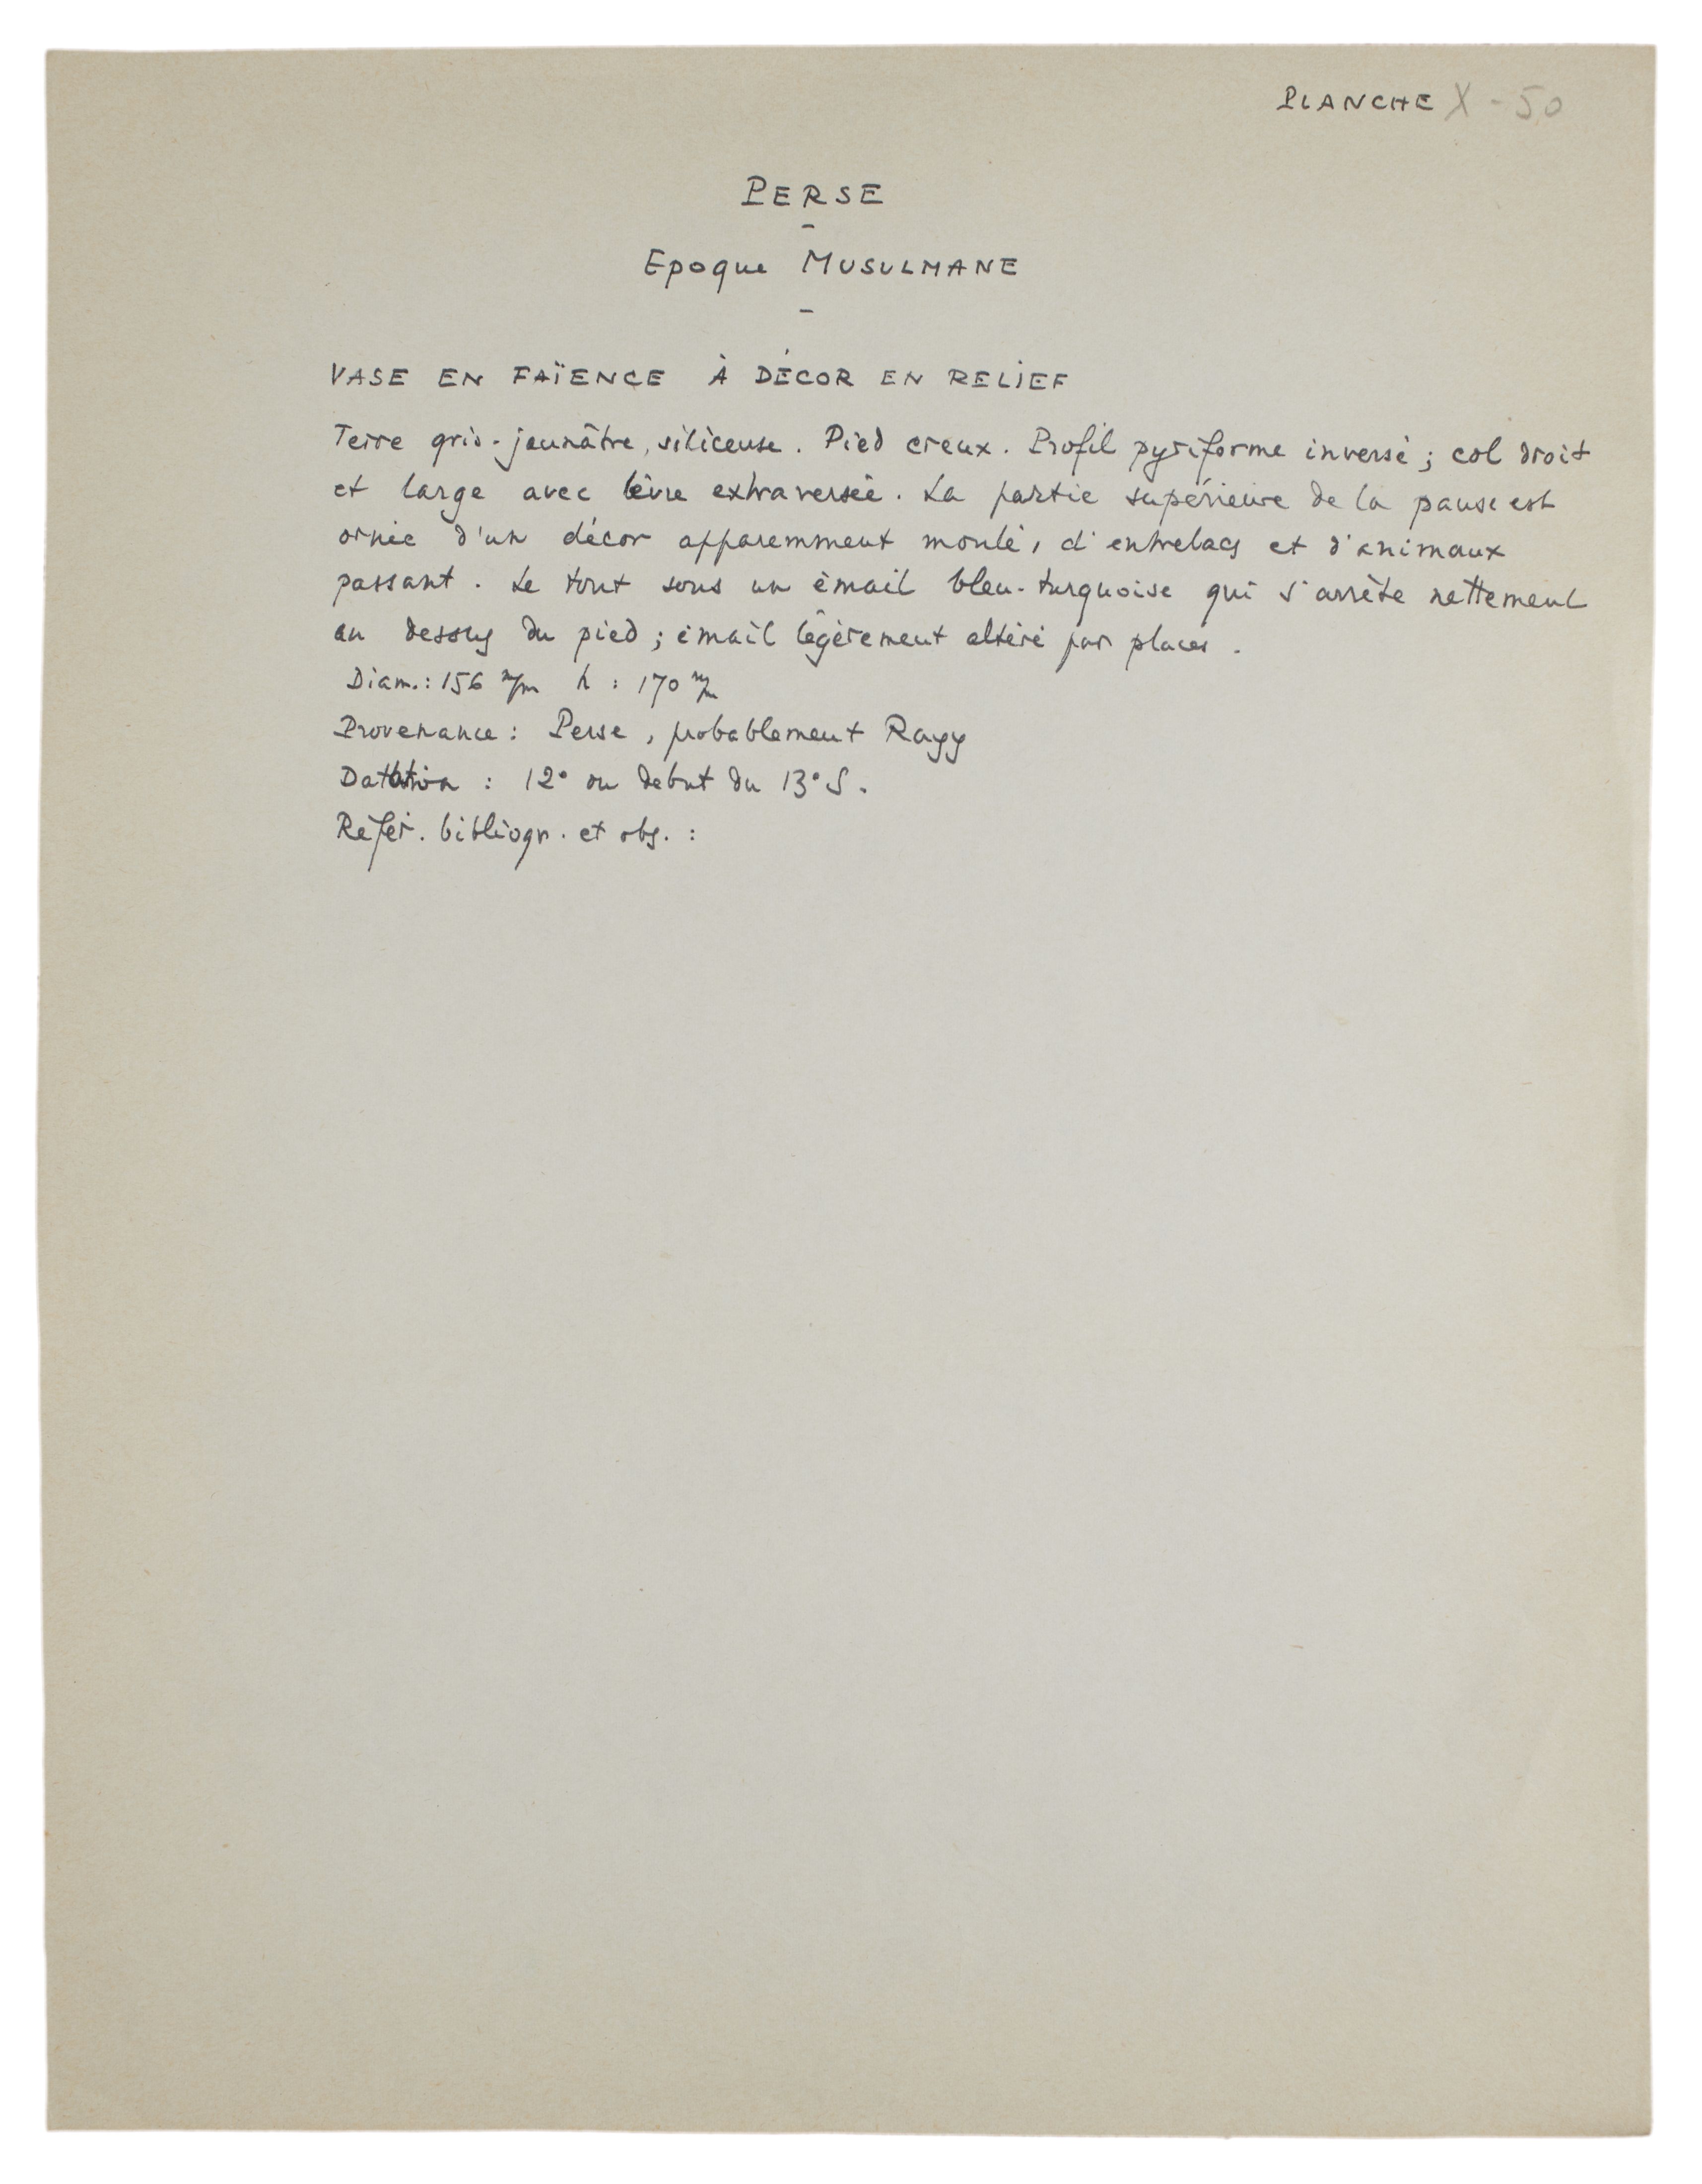 PLANCHE X - 50
PERSE
-
Epoque MUSULMANE
-
VASE EN FAÏENCE À DÉCOR EN RELIEF
Terre gris-jaunâtre, siliceuse. Pied creux. Profil pyriforme inversé; col droit
et large avec lèvre extraversée. La partie supérieure de la panse est
ornée d'un décor apparemment moulé, d'entrelacs et d'animaux
passant. Le tout sous un émail bleu-turquoise qui s'arrête nettement
au dessus du pied; émail légèrement altéré par places.
Diam.: 156 m/m h : 170 m/m
Provenance : Perse, probablement Rayy
Datation : 12° ou début du 13° S.
Référ. bibliogr. et obs. :